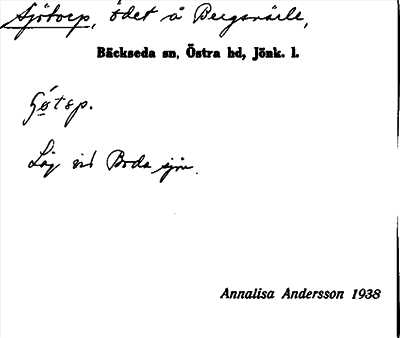 Sjötorp, ödet å Bergsnärle,
Bäckseda sn, Östra hd, Jönk. l.
Låg vid Boda sjön.
Annalisa Andersson 1938